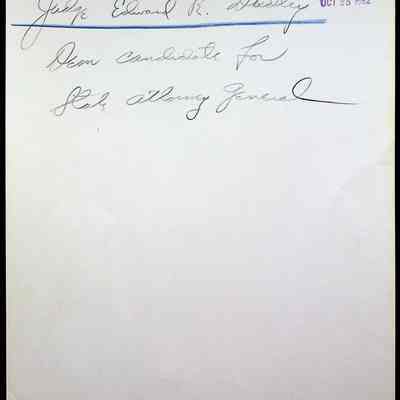 Judge Edward R. Dudley
OCT 25 1962
Dem candidate for
State Attorney General